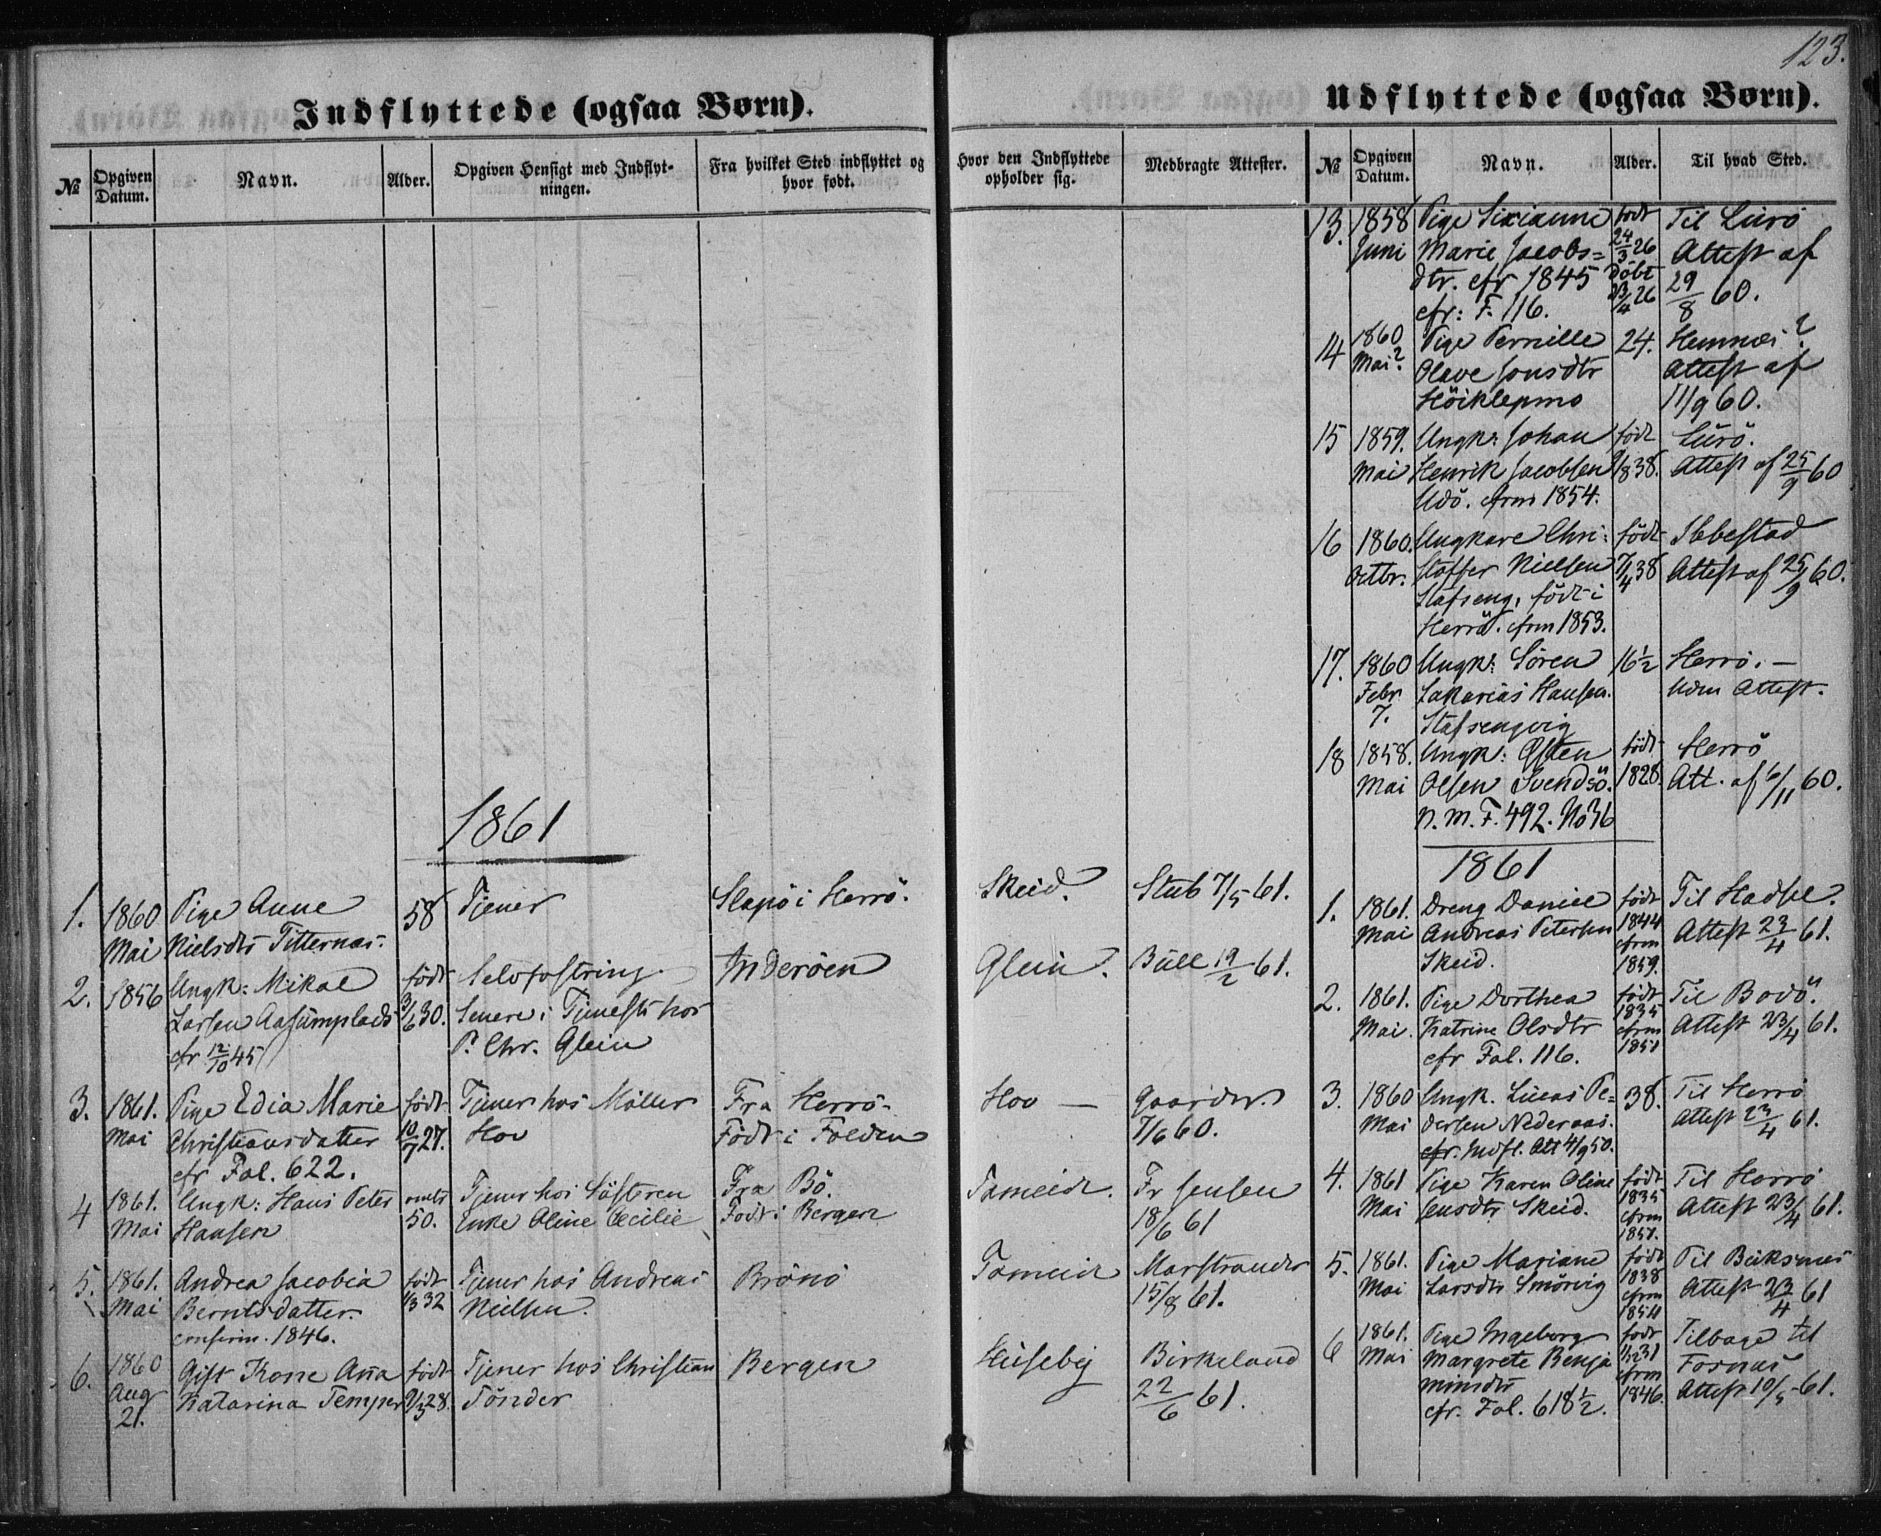 123.
Indflyttede (ogsaa Børn).
№
Opgiven Datum.
Navn.
Alder.
Opgiven Hensigt med Indflyt-
ningen.
Fra hvilket Sted indflyttet og
hvor født.
Hvor den Indflyttede
opholder sig.
Medbragte Attester.
1861
1.
1860
Mai
Pige Anne
Nielsdtr Titternæs.
58
Tjener
Slapö i Herrö.
Skeid.
Stub 7/5 61.
2.
1856
Ungk: Mikal
Larsen Aasumplads
cfr 12/10 45
född
3/6 30.
Selvfostring
Senere i Tjeneste hos
P. Chr. Glein
Inderöen
Glein.
Bull 19/2 61.
3.
1861.
Mai
Pige Edia Marie
Christiansdatter
cfr Fol. 622.
född
10/7 27.
Tjener hos Möller
Hov
Fra Herrö.
Födt i Folden
Hov —
Gaarder
7/6 60.
4
1861.
Mai
Ungk: Hans Peter
Hansen
omtr
50.
Tjener hos Söfteren
Enke Oline Cecilie
Fra Bö.
Födt i Bergen
Tømeidt.
Fr Jensen
18/6 61
5.
1861.
Mai
Andrea Jacobia
Berntsdatter.
confirm. 1846.
född
1/3 32
Tjener hos Andreas
Nielsen.
Brönö
Tomeidt
Marstrander
15/8 61.
6.
1860
Aug
21.
Gift Kone Aña
Katarina Temper
född
2/3 28.
Tjener hos Christian
Tönder
Bergen
Huseby
Birkeland
22/6 61.
Udflyttede (ogsaa Børn).
№
Opgiven
Datum.
Navn.
Alder.
Til hvad Sted.
13.
1858
Juni
Pige Sixianne
Marie Jacobs=
dtr. cfr 1845
cfr: F. 116.
födt
24/3 26
Döbt
23/4 26
Til Lurö
Attest af
29/8 60.
14
1860
Mai?
Pige Pernille
Olave Jonsdtr
Höiklepmo
24.
Hemnæs?
Attest af
11/9 60.
15
1859.
Mai
Ungk: Johan
Henrik Jacobsen
Udö. cfrm 1854.
födt
1838.
Lurö.
Attest af 25/9 60
16
1860.
Octbr.
Ungkare Chri:
stoffer Nielsen
Stafseng, födt i
Herrö. cfrm 1853.
födt
7/4 38
Ibbestad
Attest af 25/9 60.
17.
1860
Febr
7.
Ungk: Sören
Zakarias Hansen.
Stafsengvig
16½
Herrö. —
Uden Attest.
18
1858.
Mai
Ungk: Østen
Olsen Svendsö.
n. m. F. 492. No 36
födt
1828.
Herrö
Att. af 6/11 60.
1861
1.
1861.
Mai
Dreng Daniel
Andreas Petersen
Skeid.
födt
1844
cfrm
1859.
Til Hadsel.
Attest 23/4 61.
2.
1861.
Mai.
Pige Dorthea
Katrine Olsdtr
cfr Fol. 116.
födt
1835
cfrm
1851
Til Bodö.
Attest 23/4 61.
3.
1860
Mai
Ungk. Lucas Pe=
dersen Nederaas.
cfr. Indfl. Att 4/9 50.
38.
Til Herrö
Attest 23/4 61.
4.
1861
Mai
Pige Karen Oline
Jensdtr Skeid.
födt
1835
cfrm
1851.
Til Herrö
Attest 23/4 61.
5.
1861.
Mai
Pige Mariane
Larsdtr Smörvig
födt
1838
cfrm
1854
Til Buksnæs
Attest 23/4 61
6
1861.
Mai
Pige Ingeborg
Margrete Benja
minsdtr
cfr. Fol. 618½.
födt
1/12 31
cfrm
1846.
Tilbage til
Fornæs
Attest 10/5 61.